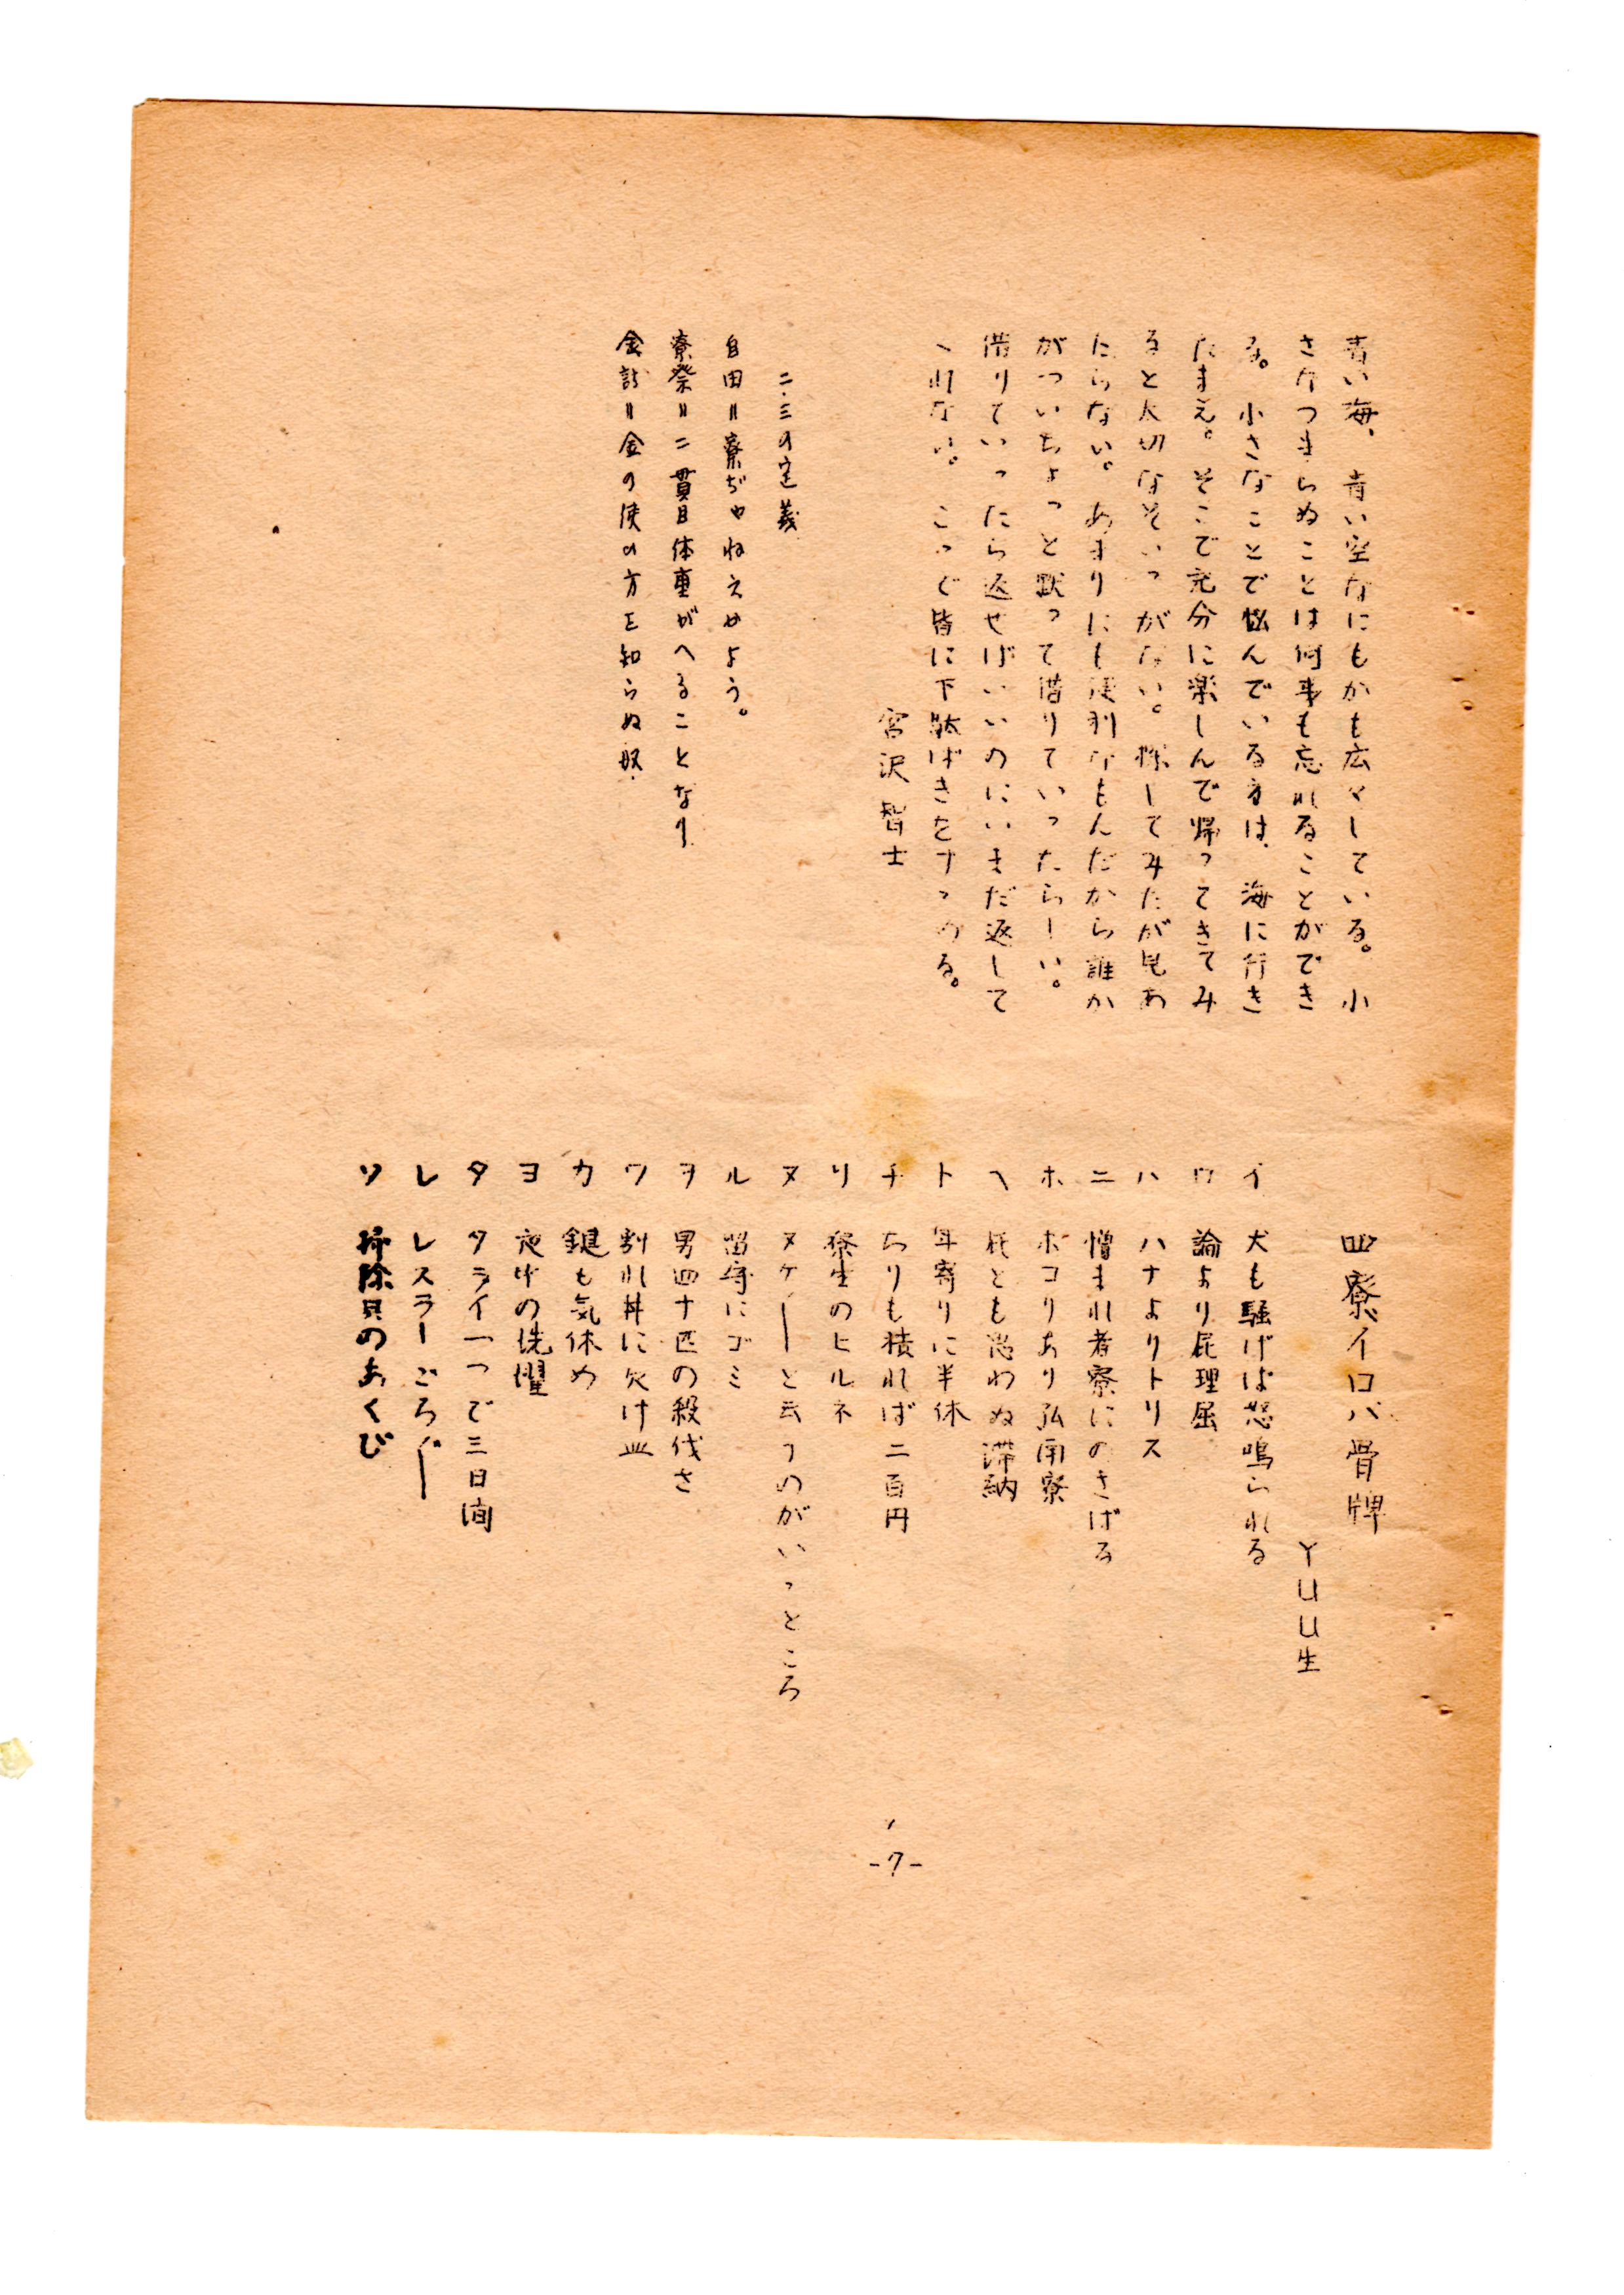 青い海、青い空なにもかも広々している。小
さなつまらぬことは何事も忘れることができ
る。小さなことで悩んでいる者は、海に行き
たまえ。そこで充分に楽しんで帰ってきてみ
ると大切なそいつがない。探してみたが見あ
たらない。あまりにも便利なもんだから誰か
がついちょっと黙って借りていったらしい。
借りていったら返せばいいのにいまだ返して
くれない。こっで皆に下駄ばきをすゝめる。
宮沢智士
二・三の定義
自由〓寮ぢゃねえかよう。
寮祭〓二貫目体重がへることなり
会計〓金の使い方を知らぬ奴・
四寮イロハ骨牌
YUU生
イ 犬も騒げば怒鳴られる
ロ 論より屁理屈
ハ ハナよりトリス
ニ 憎まれ者寮にのさばる
ホ ホコりあり弘南寮
ヘ 屁とも思わぬ滞納
ト 年寄りに半休
チ ちりも積れば二百円
リ 寮生のヒルネ
ヌ ヌケ〳〵と云うのがいゝところ
ル 留守にゴミ
ヲ 男四十匹の殺伐さ
ワ 割れ丼に欠け皿
カ 鍵も気休め
ヨ 夜中の洗濯
タ タライ一つで三日間
レ レスラーごろ〴〵
ソ 掃除只のあくび
-7-